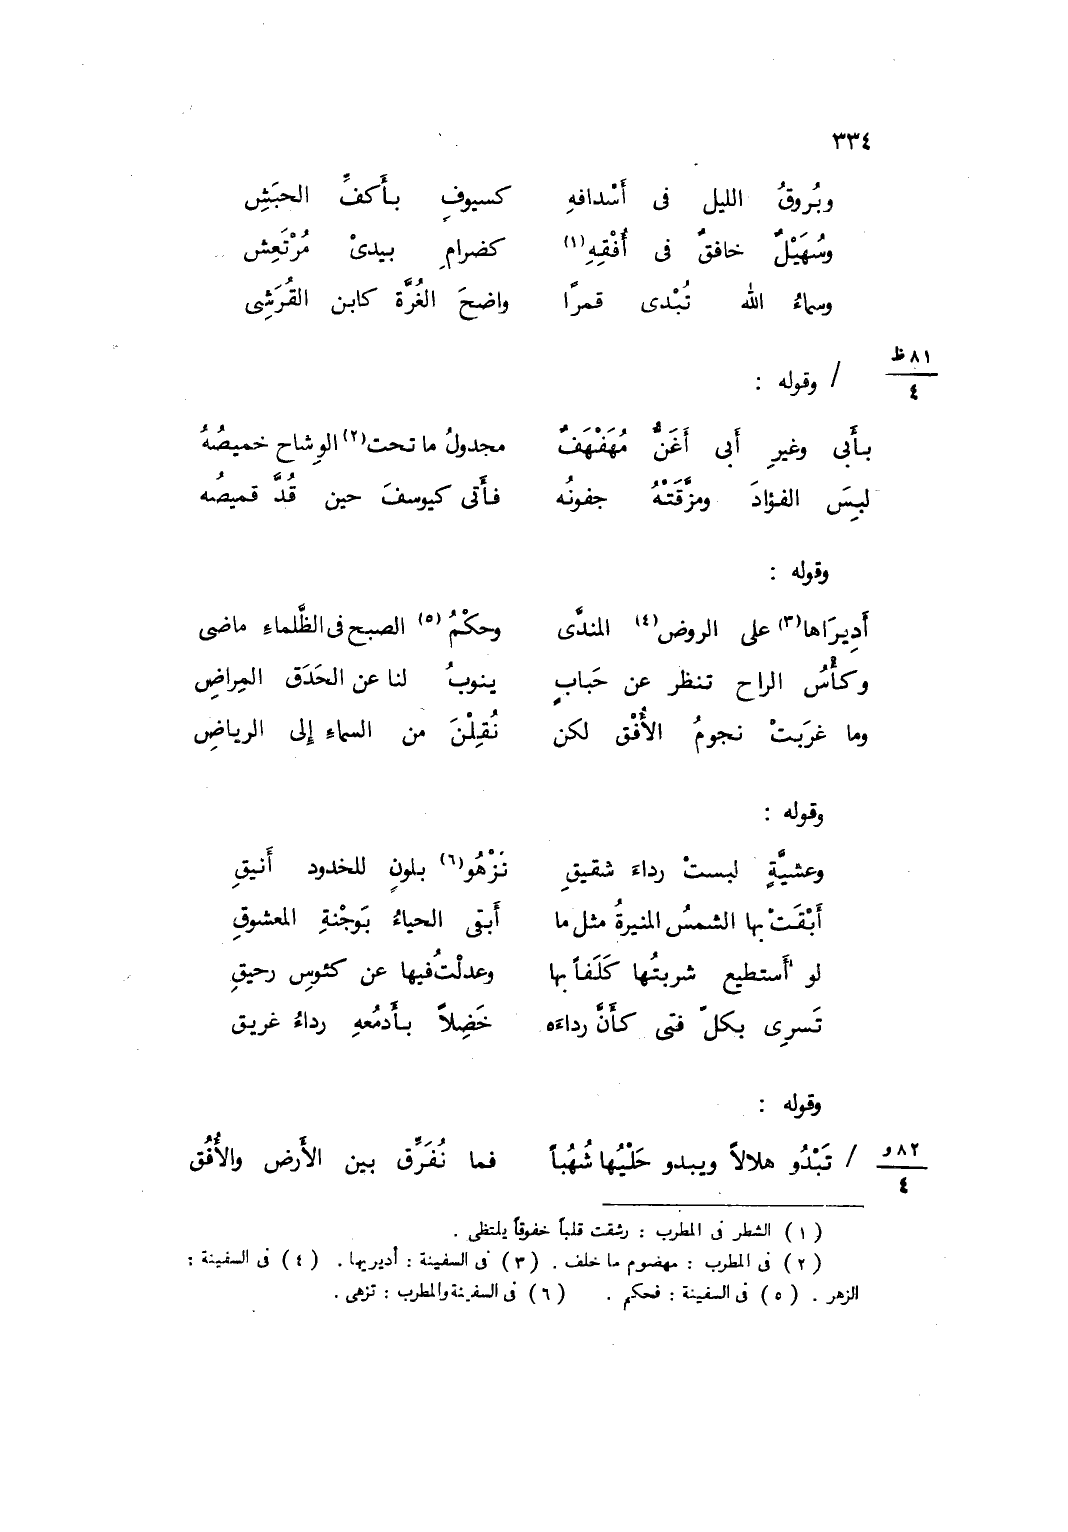 ٣٣٤
وبُروقُ الليل فى أَسْدافهِ كسيوفٍ بأَكفِّ الحبَشِ
وسُهَيْلٌ خافقٌ فى أُفْقِهِ(١) كضرامٍ بيدىْ مُرْتَعِش
وسماءُ الله تُبْدى قمرًا واضحَ الغُرَّة كابن القُرَشِى
٨١ظ
٤
/ وقوله :
بأَبى وغيرِ أبى أَغَنٌّ مُهَفْهَفٌ مجدولُ ما تحت(٢) الوِشاح خميصُهُ
لبِسَ الفؤادَ ومزَّقَتْهُ جفونُه فأَتى كيوسفَ حين قُدَّ قميصُه
وقوله :
أَدِيرَاها(٣) على الروض(٤) المندَّى وحكْمُ(٥) الصبح فى الظَّلماءِ ماضى
وكأْسُ الراح تنظر عن حَبابٍ ينوبُ لنا عن الحَدَق المِراضِ
وما غرَبتْ نجومُ الأُفْق لكن نُقِلْنَ من السماء إلى الرياضِ
وقوله :
وعشيَّةٍ لبستْ رداءَ شقيقِ تَزْهُو(٦) بلونٍ للخدود أنيقِ
أَبْقَتْ بها الشمسُ المنيرةُ مثل ما أَبقى الحياءُ بوَجْنةِ المعشوقِ
لو أَستطيع شربتُها كَلَفاً بها وعدلْتُ فيها عن كئوسِ رحيقِ
تَسرِى بكلّ فتى كأَنَّ رداءَه خَضِلاً بأَدمُعهِ رداءُ غريق
وقوله :
٨٢و
٤
/ تَبْدُو هلالاً ويبدو حَلْيُها شُهُباً فما نُفَرِّق بين الأَرض والأُفُق
(١) الشطر فى المطرب : رشقت قلباً خفوقاً يلتظى .
(٢) فى المطرب : مهضوم ما خلف . (٣) فى السفينة : أديريها . (٤) فى السفينة :
الزهر . (٥) فى السفينة : فحكم . (٦) فى السفينة والمطرب : تزهى .